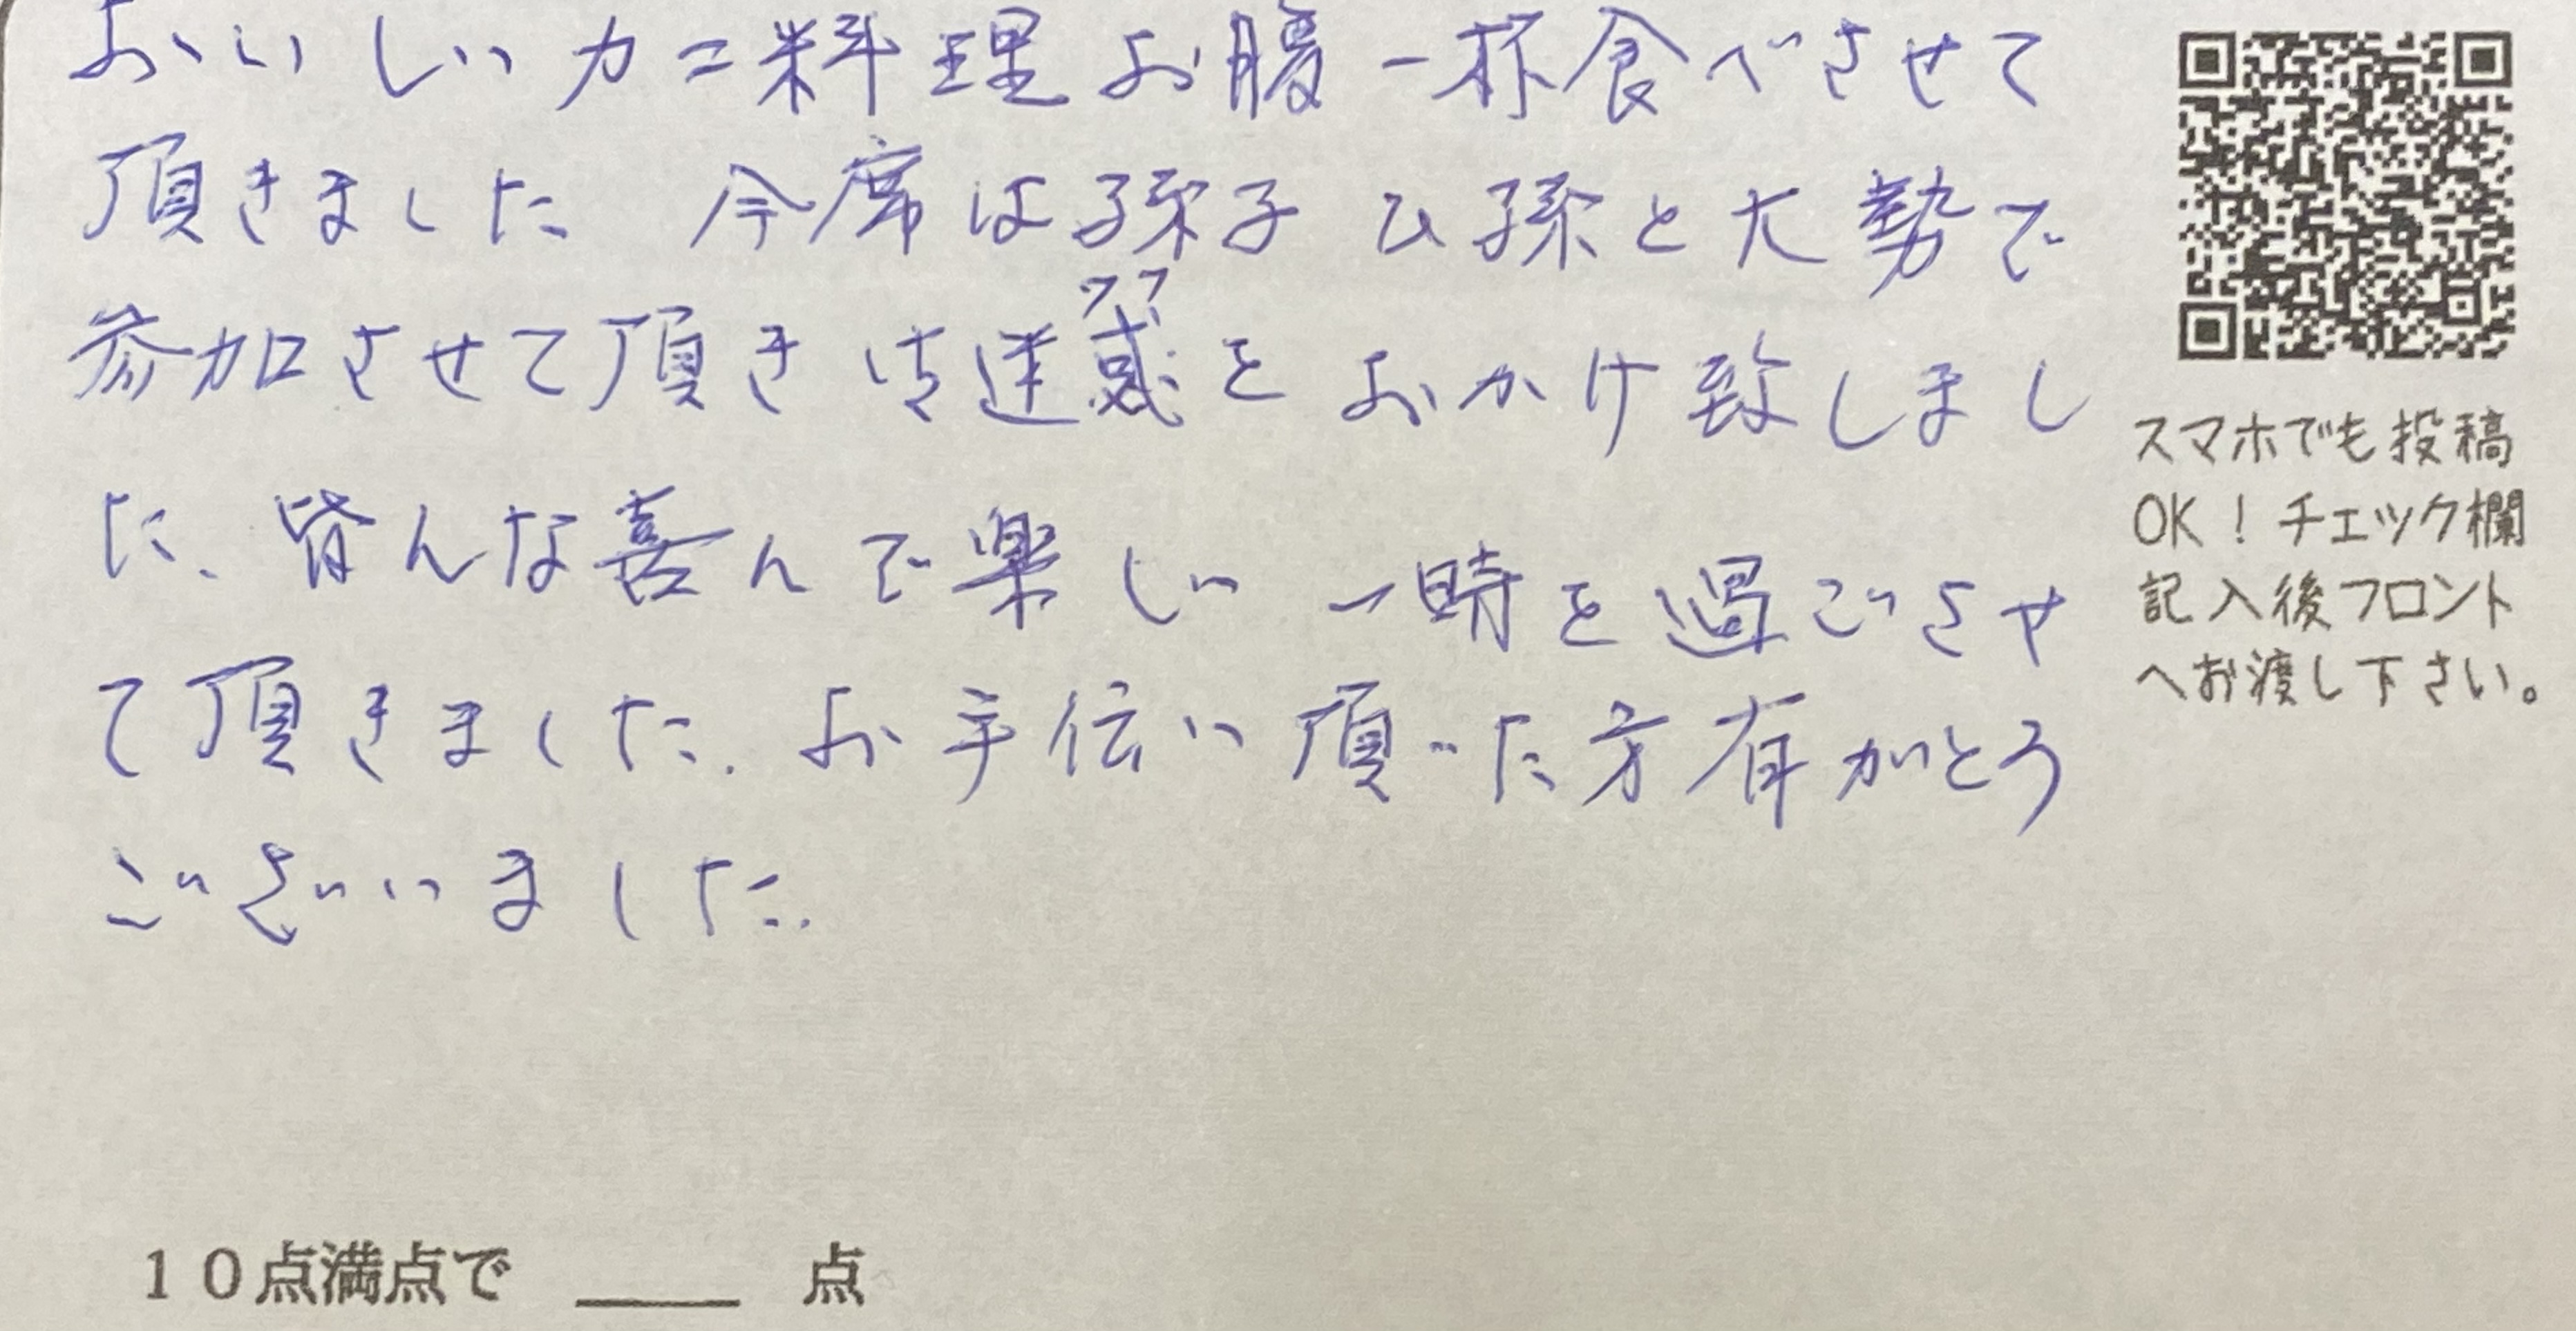 おいしいカニ料理お腹一杯食べさせて
頂きました 今席は孫子 ひ孫と大勢で
参加させて頂き 迷惑を おかけ致しまし
た、皆んな喜んで楽しい 一時を過ごさせ
て頂きました。お手伝い頂いた方有がとう
ございました。
スマホでも投稿
OK！チェック欄
記入後フロント
へお渡し下さい。
10点満点で ____ 点